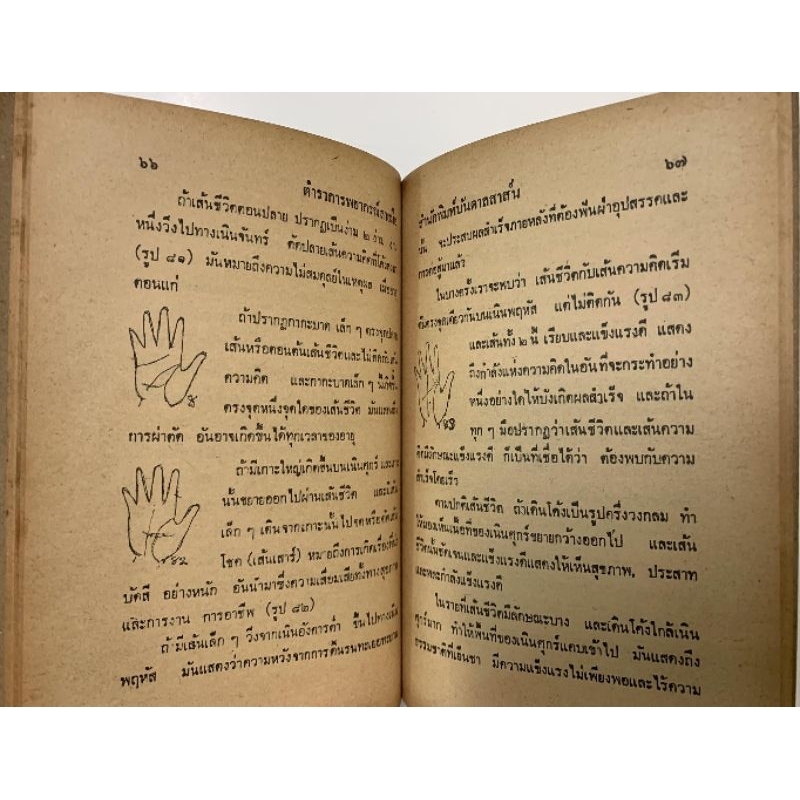 ๖๖
ตำราการพยากรณ์
ถ้าเส้นชีวิตตอนปลาย ปรากฏเป็นง่าม ๒ ง่าม
หนึ่งวิ่งไปทางเนินจันทร์ ตัดปลายเส้นความคิดที่
(รูป ๘๑) มันหมายถึงความไม่สมดุลย์ในเหตุผล เมื่อ
ตอนแก่
ถ้าปรากฏกากะบาด เล็ก ๆ ตรงจุด
เส้นหรือตอนต้นเส้นชีวิตและไม่ติดกับ
ความคิด และกากะบาดเล็ก ๆ นี้
ตรงจุดหนึ่งจุดใดของเส้นชีวิต มัน
การผ่าตัด อันอาจเกิดขึ้นได้ทุกเวลาของอายุ
ถ้ามีเกาะใหญ่เกิดขึ้นบนเนินศุกร์ และ
นั้นขยายออกไปผ่านเส้นชีวิต และ
เล็ก ๆ เดินจากเกาะนั้นไปจดหรือตัด
โชค (เส้นเสาร์) หมายถึงการเกิดเรื่อง
๘๒
บัดสี อย่างหนัก อันนำมาซึ่งความเสื่อมเสียทั้งทางสุขภาพ
และการงาน การอาชีพ (รูป ๘๒)
ถ้ามีเส้นเล็ก ๆ วิ่งจากเนินอังคารต่ำ ขึ้นไปทางเนิน
พฤหัส มันแสดงว่าความหวังจากการดิ้นรนทะเยอทะยาน
๖๗
สำนักพิมพ์บันดาลสาส์น
นั้น จะประสบผลสำเร็จภายหลังที่ต้องฟันฝ่าอุปสรรคและ
การต่อสู้มาแล้ว
ในบางครั้งเราจะพบว่า เส้นชีวิตกับเส้นความคิดเริ่ม
ตรงจุดเดียวกันบนเนินพฤหัส แต่ไม่ติดกัน (รูป ๘๓)
และเส้นทั้ง ๒ นี้ เรียบและแข็งแรงดี แสดง
ถึงกำลังแห่งความคิดในอันที่จะกระทำอย่าง
หนึ่งอย่างใดให้บังเกิดผลสำเร็จ และถ้าใน
ทุก ๆ มือปรากฏว่าเส้นชีวิตและเส้นความ
คิดมีลักษณะแข็งแรงดี ก็เป็นที่เชื่อได้ว่า ต้องพบกับความ
สำเร็จโดยเร็ว
ตามปกติเส้นชีวิต ถ้าเดินโค้งเป็นรูปครึ่งวงกลม ทำ
ให้มองเห็นเนื้อที่ของเนินศุกร์ขยายกว้างออกไป และเส้น
ชีวิตนั้นชัดเจนและแข็งแรงดีแสดงให้เห็นสุขภาพ, ประสาท
และพละกำลังแข็งแรงดี
ในรายที่เส้นชีวิตมีลักษณะบาง และเดินโค้งใกล้เนิน
ศุกร์มาก ทำให้พื้นที่ของเนินศุกร์แคบเข้าไป มันแสดงถึง
ธรรมชาติที่เย็นชา มีความแข็งแรงไม่เพียงพอและไร้ความ